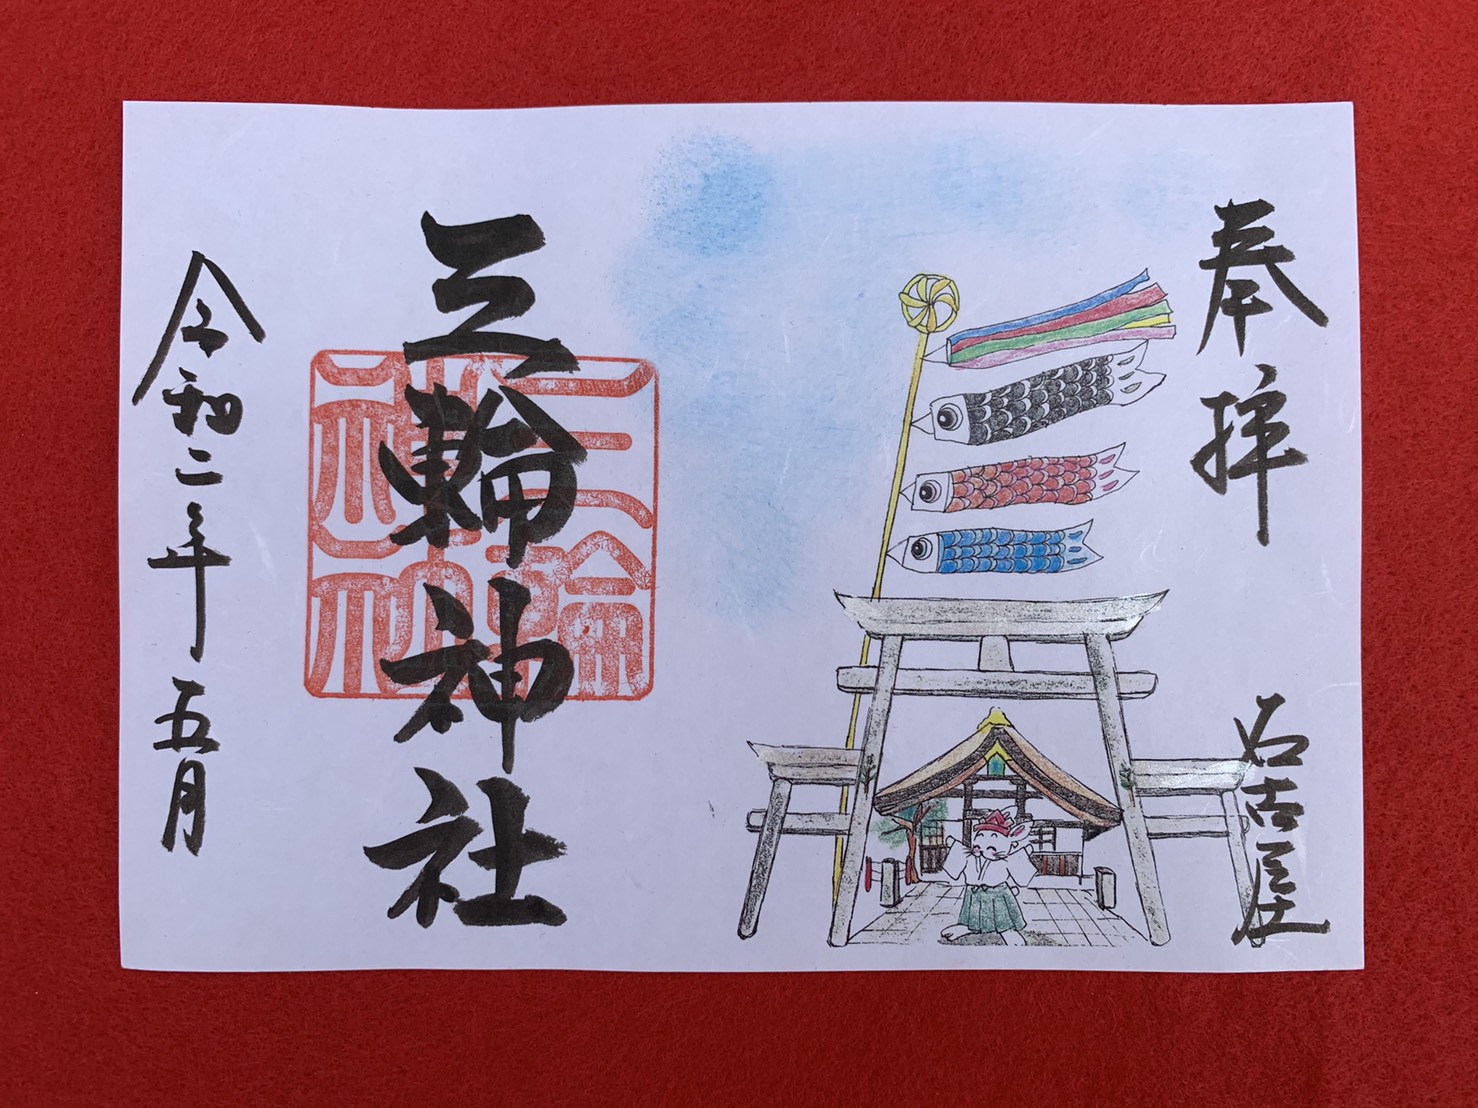 奉拝
名古屋
三輪神社
三輪
神社
令和二年五月